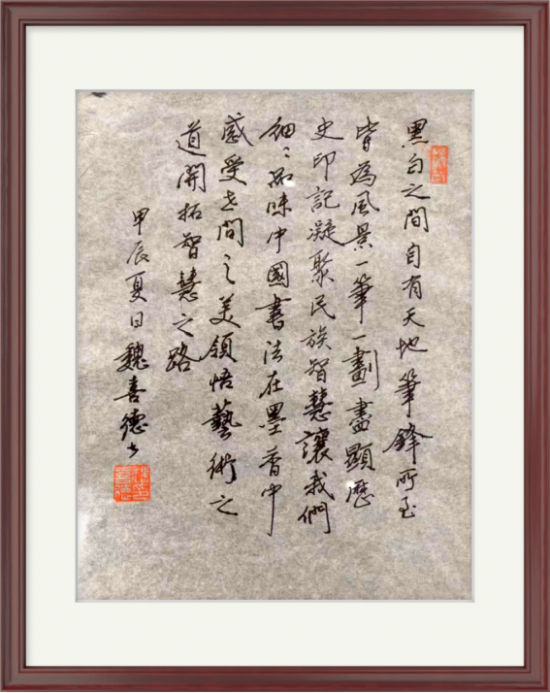 黑白之間自有天地筆鋒所至
皆為風景一筆一劃盡顯歷
史印記凝聚民族智慧讓我們
細〻品味中國書法在墨香中
感受世間之美領悟藝術之
道開拓智慧之路
甲辰夏日魏喜德书